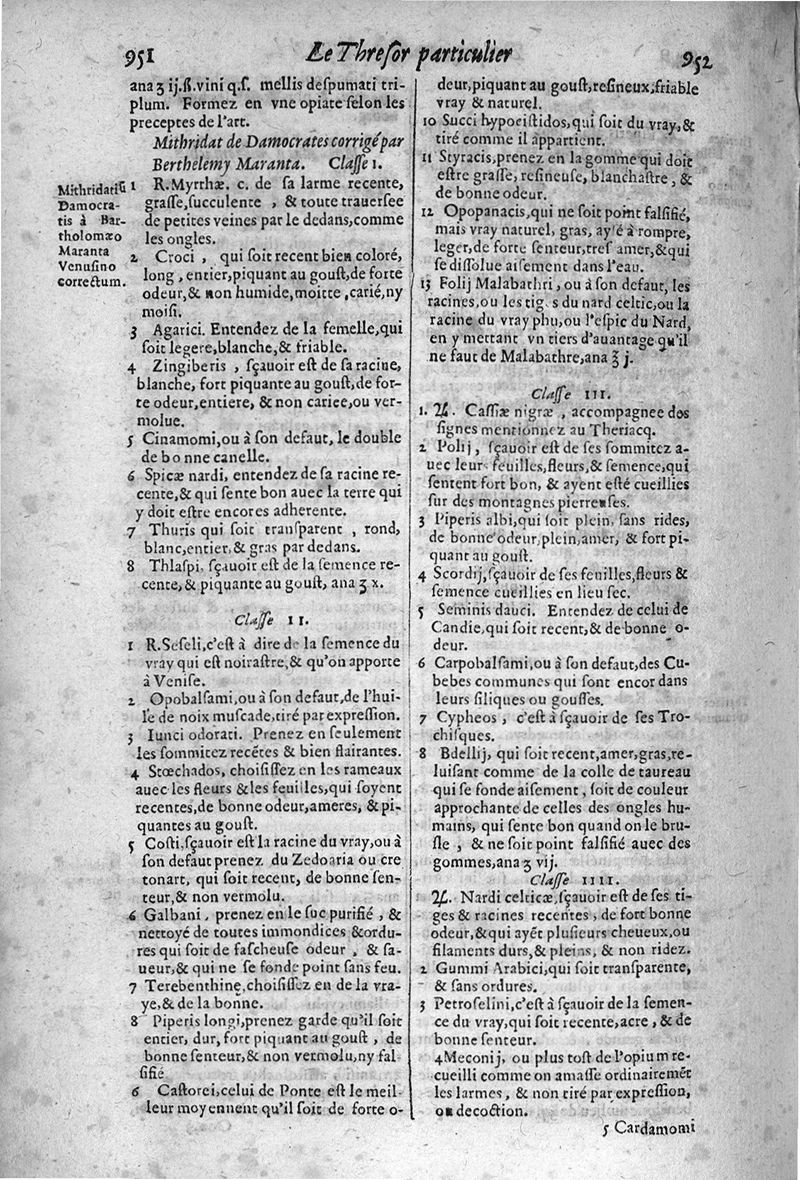 951
Le Thresor particulier
952
ana ʒ ij.ß.vini q.ſ. mellis deſpumati tri-
plum. Formez en vne opiate ſelon les
preceptes de l'art.
Mithridat de Damocrates corrigé par
Berthelemy Maranta. Claſſe 1.
Mithridatiũ
Damocra-
tis à Bar-
tholomæo
Maranta
Venuſino
correctum.
1 R.Myrrhæ. c. de ſa larme recente,
graſſe,ſucculente , & toute trauerſee
de petites veines par le dedans,comme
les ongles.
2 Croci , qui ſoit recent bien coloré,
long , entier,piquant au gouſt,de forte
odeur,& non humide,moitte ,carié,ny
moiſi.
3 Agarici. Entendez de la femelle,qui
ſoit legere,blanche,& friable.
4 Zingiberis , ſçauoir eſt de ſa racine,
blanche, fort piquante au gouſt,de for-
te odeur,entiere, & non cariee,ou ver-
molue.
5 Cinamomi,ou à ſon defaut, le double
de bonne canelle.
6 Spicæ nardi, entendez de ſa racine re-
cente,& qui ſente bon auec la terre qui
y doit eſtre encores adherente.
7 Thuris qui ſoit tranſparent , rond,
blanc,entier,& gras par dedans.
8 Thlaſpi, ſçauoir eſt de la ſemence re-
cente, & piquante au gouſt, ana ʒ x.
Claſſe II.
1 R.Seſeli,c'eſt à dire de la ſemence du
vray qui eſt noiraſtre,& qu'on apporte
à Veniſe.
2 Opobalſami,ou à ſon defaut,de l'hui-
le de noix muſcade,tiré par expreſſion.
3 Iunci odorati. Prenez en ſeulement
les ſommitez recẽtes & bien flairantes.
4 Stœchados, choiſiſſez en les rameaux
auec les fleurs & les feuilles,qui ſoyent
recentes,de bonne odeur,ameres, & pi-
quantes au gouſt.
5 Coſti,ſçauoir eſt la racine du vray,ou à
ſon defaut prenez du Zedoaria ou cre
tonart, qui ſoit recent, de bonne ſen-
teur,& non vermolu.
6 Galbani, prenez en le ſuc purifié , &
nettoyé de toutes immondices & ordu-
res qui ſoit de faſcheuſe odeur , & ſa-
ueur,& qui ne ſe fonde point ſans feu.
7 Terebenthine,choiſiſſez en de la vra-
ye,& de la bonne.
8 Piperis longi,prenez garde qu'il ſoit
entier, dur, fort piquant au gouſt , de
bonne ſenteur,& non vermolu,ny fal-
ſifié
6 Caſtorei,celui de Ponte eſt le meil-
leur moyennent qu'il ſoit de forte o-
deur,piquant au gouſt,reſineux,friable
vray & naturel.
10 Succi hypociſtidos, qui ſoit du vray,&
tiré comme il appartient.
11 Styracis,prenez en la gomme qui doit
eſtre graſſe, reſineuſe, blanchaſtre , &
de bonne odeur.
12 Opopanacis,qui ne ſoit point falſifié,
mais vray naturel, gras, ayſé à rompre,
leger,de forte ſenteur,treſ amer,& qui
ſe diſſolue aiſement dans l'eau.
13 Folij Malabathri , ou à ſon defaut, les
racines,ou les tiges du nard celtic,ou la
racine du vray phu,ou l'eſpic du Nard,
en y mettant vn tiers d'auantage qu'il
ne faut de Malabathre,ana ℥ j.
Claſſe III.
1. ℞. Caſſiæ nigræ , accompagnee dos
ſignes mentionnez au Theriacq.
2 Polij , ſçauoir eſt de ſes ſommitez a-
uec leurs feuilles,fleurs,& ſemence,qui
ſentent fort bon, & ayent eſté cueillies
ſur des montagnes pierreuſes.
3 Piperis albi,qui ſoit plein, ſans rides,
de bonne odeur,plein,amer, & fort pi-
quant au gouſt.
4 Scordij,ſçauoir de ſes feuilles,fleurs &
ſemence cueillies en lieu ſec.
5 Seminis dauci. Entendez de celui de
Candie,qui ſoit recent,& de bonne o-
deur.
6 Carpobalſami,ou à ſon defaut,des Cu-
bebes communes qui ſont encor dans
leurs ſiliques ou gouſſes.
7 Cypheos , c'eſt à ſçauoir de ſes Tro-
chiſques.
8 Bdellij, qui ſoit recent,amer,gras,re-
luiſant comme de la colle de taureau
qui ſe fonde aiſement , ſoit de couleur
approchante de celles des ongles hu-
mains, qui ſente bon quand on le bru-
ſle , & ne ſoit point falſifié auec des
gommes,ana ʒ vij.
Claſſe IIII.
℞. Nardi celticæ,ſçauoir eſt de ſes ti-
ges & racines recentes , de fort bonne
odeur,& qui ayẽt pluſieurs cheueux,ou
filaments durs,& pleins, & non ridez.
2 Gummi Arabici,qui ſoit tranſparente,
& ſans ordures.
3 Petroſelini,c'eſt à ſçauoir de la ſemen-
ce du vray,qui ſoit recente,acre , & de
bonne ſenteur.
4Meconij, ou plus toſt de l'opium re-
cueilli comme on amaſſe ordinairemẽt
les larmes , & non tiré par expreſſion,
ou decoction.
5 Cardamomi